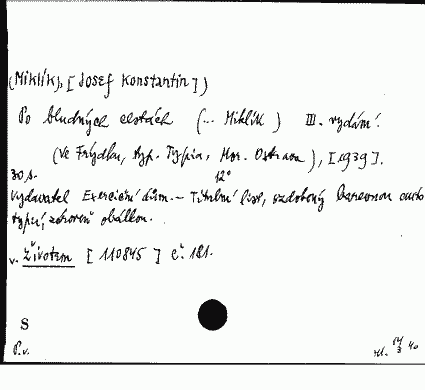 (Miklík), [Josef Konstantin])
Po bludných cestách (... Miklík) III. vydání.
(Ve Frýdku, typ. Typia, Mor. Ostrava), [1939].
30 s. 12°
Vydavatel Exerciční dům. – Titulní list, ozdobený barevnou auto-
typií, zároveň obálkou.
v. Životem [110845] č. 181.
S
P.v.